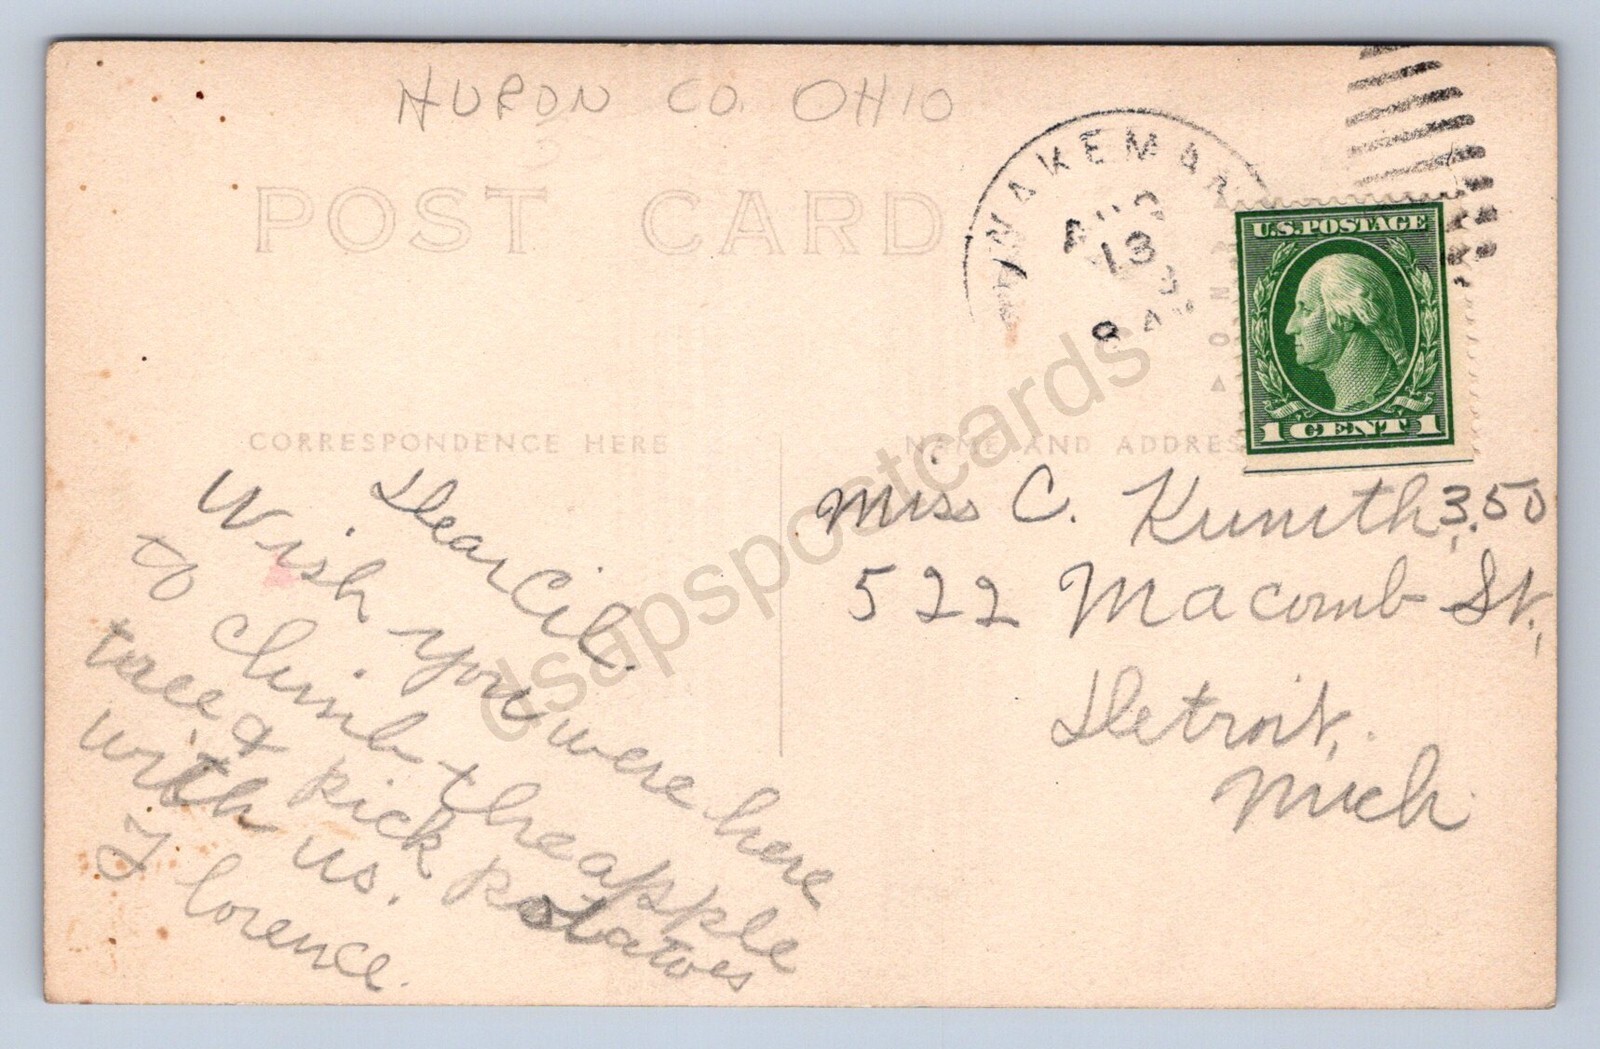 HURON CO. OHIO
POST CARD
WAKEMAN
AUG
13
U.S.POSTAGE
1 CENT 1
CORRESPONDENCE HERE
NAME AND ADDRES
Dear Cil.
Wish you were here
to climb the apple
tree & pick potatoes
with us.
Florence.
Miss C. Kunith
3.50
522 Macomb St.,
Detroit,
Mich.
dsapspostcards